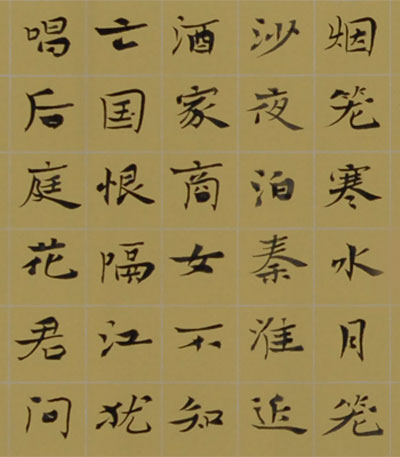 烟笼寒水月笼
沙夜泊秦淮近
酒家商女不知
亡国恨隔江犹
唱后庭花君问